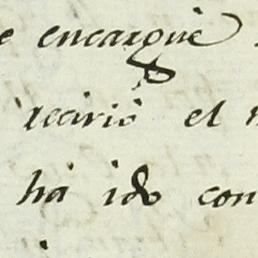 e encargué
recivió el
ha ido con